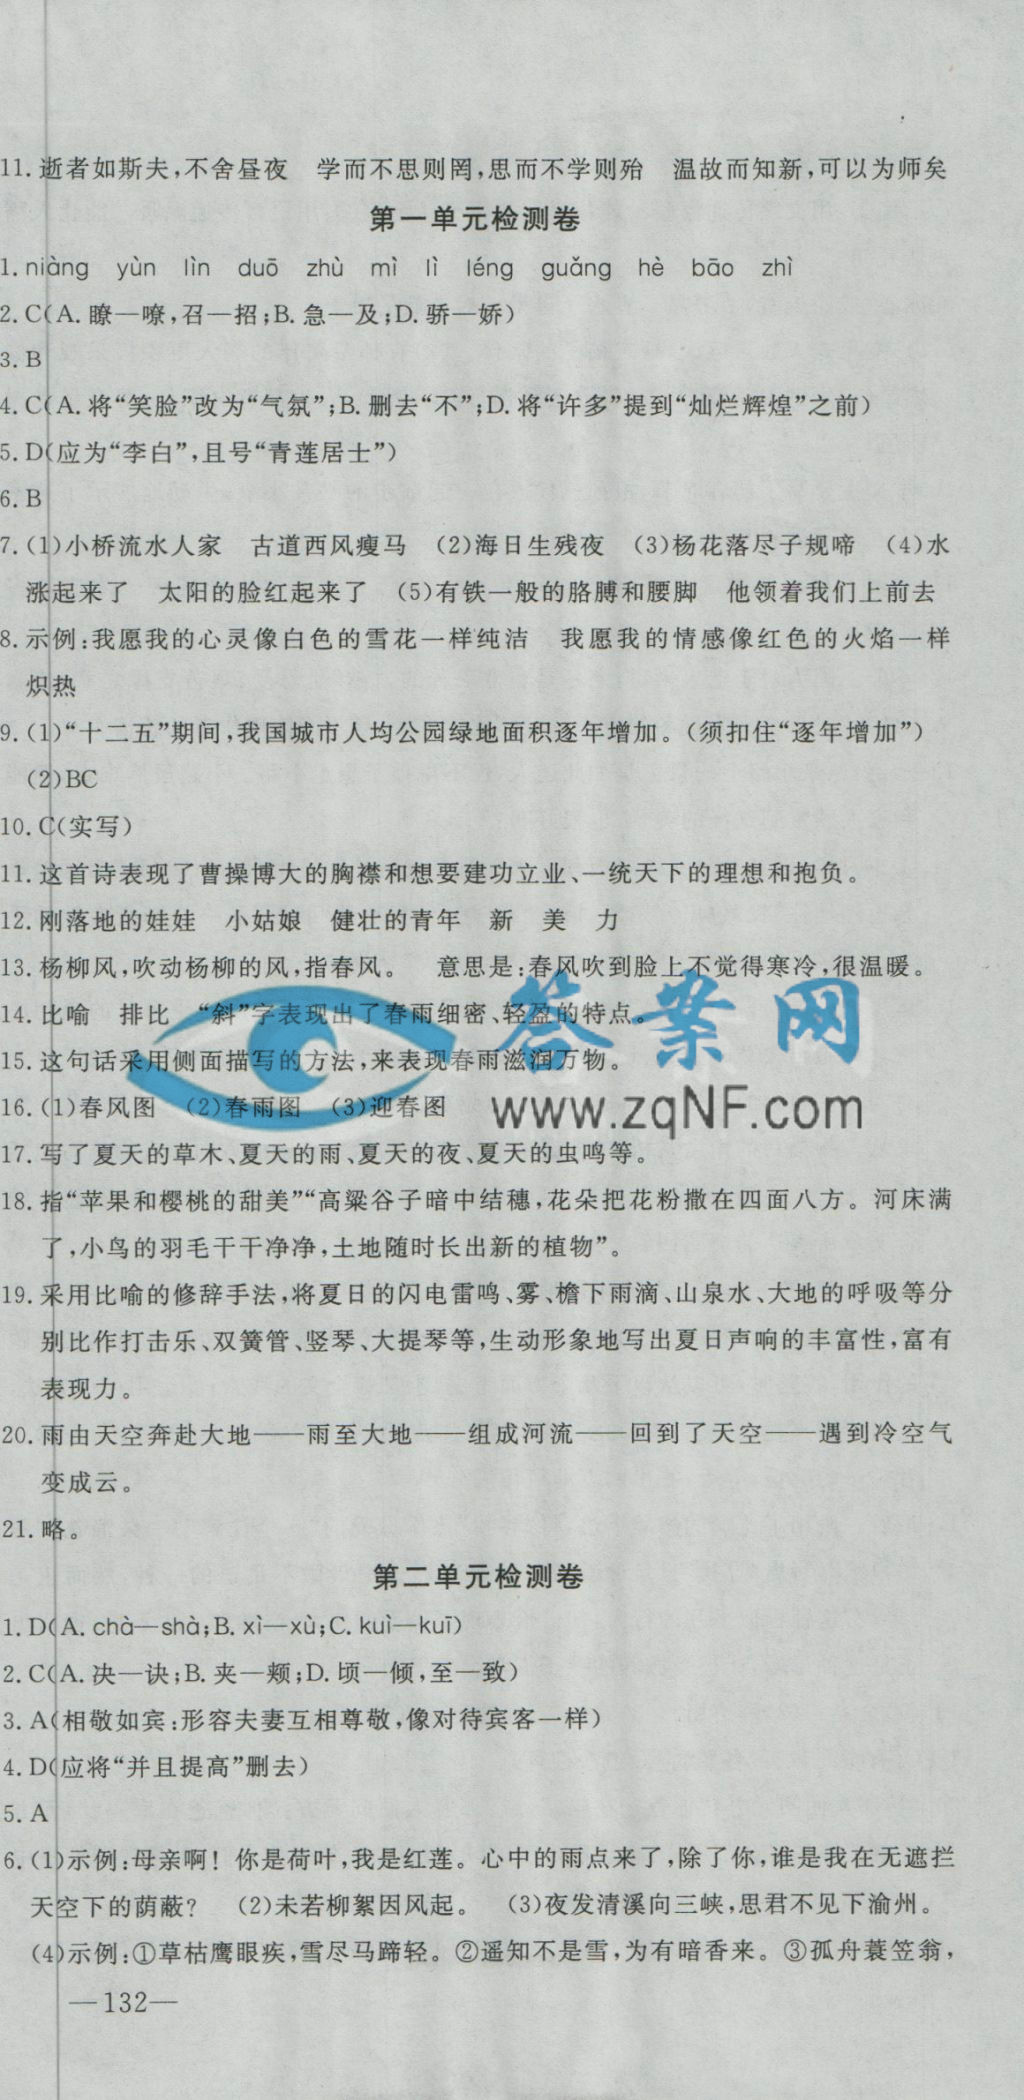 11. 逝者如斯夫,不舍昼夜　学而不思则罔,思而不学则殆　温故而知新,可以为师矣
第一单元检测卷
1. niàng　yùn　lìn　duō　zhù　mì　lì　léng　guǎng　hè　bāo　zhì
2. C(A. 瞭—嘹,召—招;B. 急—及;D. 骄—娇)
3. B
4. C(A. 将“笑脸”改为“气氛”;B. 删去“不”;D. 将“许多”提到“灿烂辉煌”之前)
5. D(应为“李白”,且号“青莲居士”)
6. B
7. (1)小桥流水人家　古道西风瘦马　(2)海日生残夜　(3)杨花落尽子规啼　(4)水
涨起来了　太阳的脸红起来了　(5)有铁一般的胳膊和腰脚　他领着我们上前去
8. 示例:我愿我的心灵像白色的雪花一样纯洁　我愿我的情感像红色的火焰一样
炽热
9. (1)“十二五”期间,我国城市人均公园绿地面积逐年增加。(须扣住“逐年增加”)
(2)BC
10. C(实写)
11. 这首诗表现了曹操博大的胸襟和想要建功立业、一统天下的理想和抱负。
12. 刚落地的娃娃　小姑娘　健壮的青年　新　美　力
13. 杨柳风,吹动杨柳的风,指春风。　意思是:春风吹到脸上不觉得寒冷,很温暖。
14. 比喻　排比　“斜”字表现出了春雨细密、轻盈的特点。
15. 这句话采用侧面描写的方法,来表现春雨滋润万物。
答案网
www.zqNF.com
16. (1)春风图　(2)春雨图　(3)迎春图
17. 写了夏天的草木、夏天的雨、夏天的夜、夏天的虫鸣等。
18. 指“苹果和樱桃的甜美”“高粱谷子暗中结穗,花朵把花粉撒在四面八方。河床满
了,小鸟的羽毛干干净净,土地随时长出新的植物”。
19. 采用比喻的修辞手法,将夏日的闪电雷鸣、雾、檐下雨滴、山泉水、大地的呼吸等分
别比作打击乐、双簧管、竖琴、大提琴等,生动形象地写出夏日声响的丰富性,富有
表现力。
20. 雨由天空奔赴大地——雨至大地——组成河流——回到了天空——遇到冷空气
变成云。
21. 略。
第二单元检测卷
1. D(A. chà—shà;B. xì—xù;C. kuì—kuī)
2. C(A. 决—诀;B. 夹—颊;D. 顷—倾,至—致)
3. A(相敬如宾:形容夫妻互相尊敬,像对待宾客一样)
4. D(应将“并且提高”删去)
5. A
6. (1)示例:母亲啊!你是荷叶,我是红莲。心中的雨点来了,除了你,谁是我在无遮拦
天空下的荫蔽?　(2)未若柳絮因风起。　(3)夜发清溪向三峡,思君不见下渝州。
(4)示例:①草枯鹰眼疾,雪尽马蹄轻。②遥知不是雪,为有暗香来。③孤舟蓑笠翁,
—132—